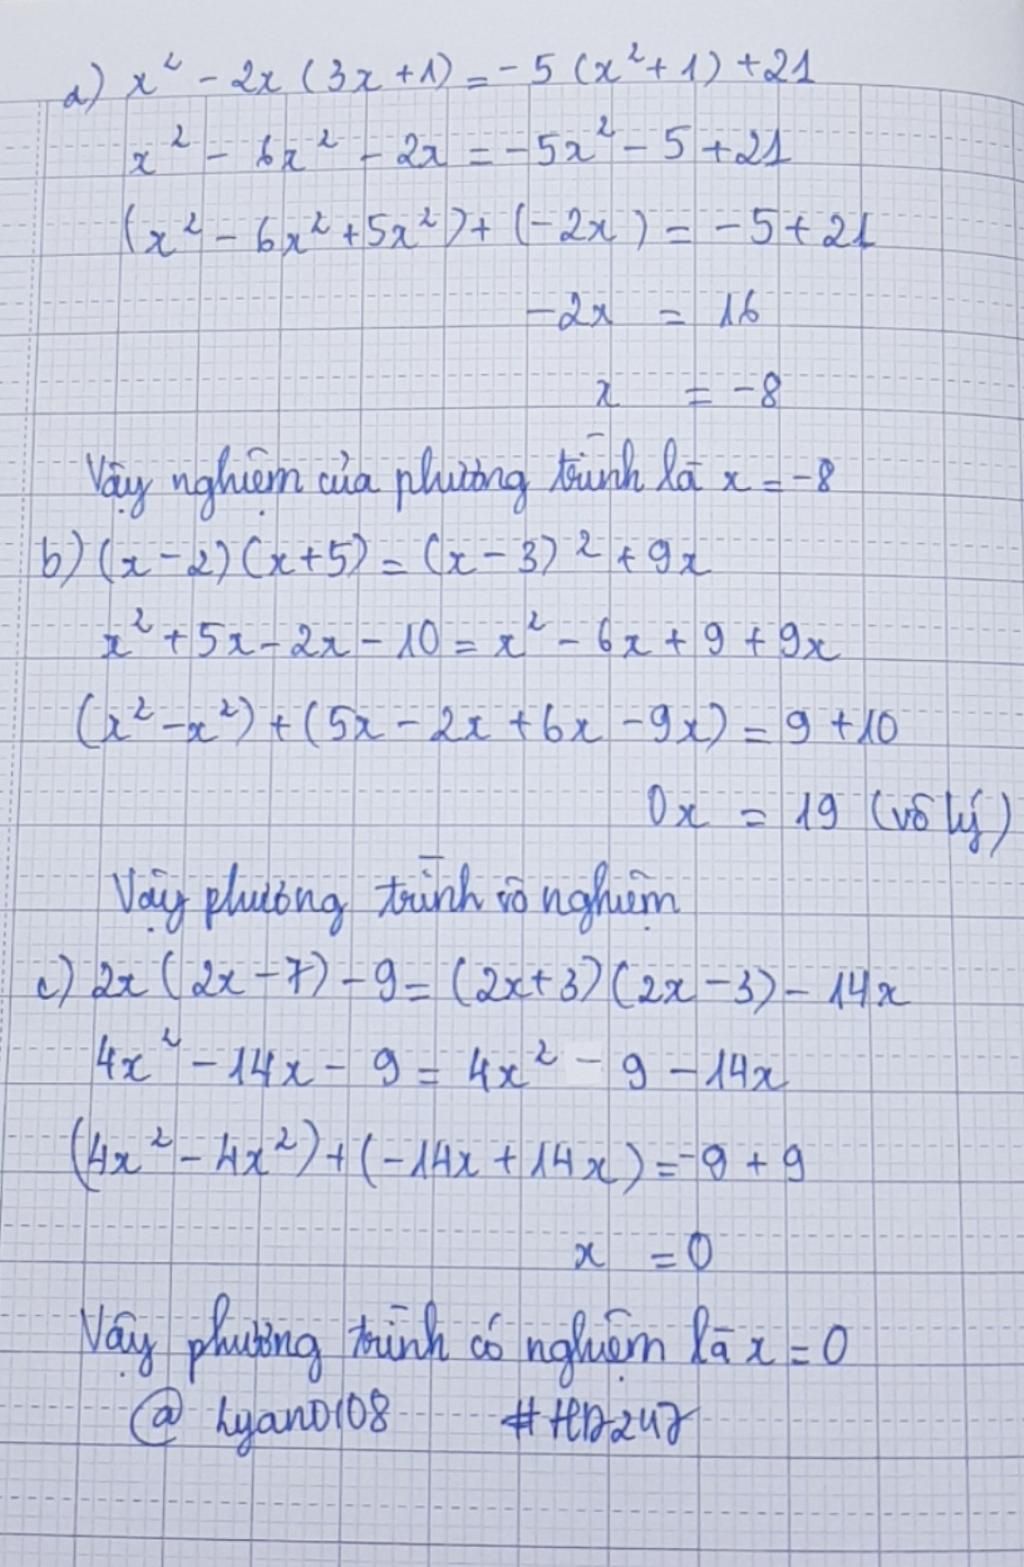 a) x² - 2x (3x + 1) = - 5 (x² + 1) + 21
x² - 6x² - 2x = -5x² - 5 + 21
(x² - 6x² + 5x²) + (-2x) = -5 + 21
-2x = 16
x = -8
Vậy nghiệm của phương trình là x = -8
b) (x - 2) (x + 5) = (x - 3)² + 9x
x² + 5x - 2x - 10 = x² - 6x + 9 + 9x
(x² - x²) + (5x - 2x + 6x - 9x) = 9 + 10
0x = 19 (vô lý)
Vậy phương trình vô nghiệm
c) 2x (2x - 7) - 9 = (2x + 3) (2x - 3) - 14x
4x² - 14x - 9 = 4x² - 9 - 14x
(4x² - 4x²) + (-14x + 14x) = -9 + 9
x = 0
Vậy phương trình có nghiệm là x = 0
@ Lyan0108 #HD247